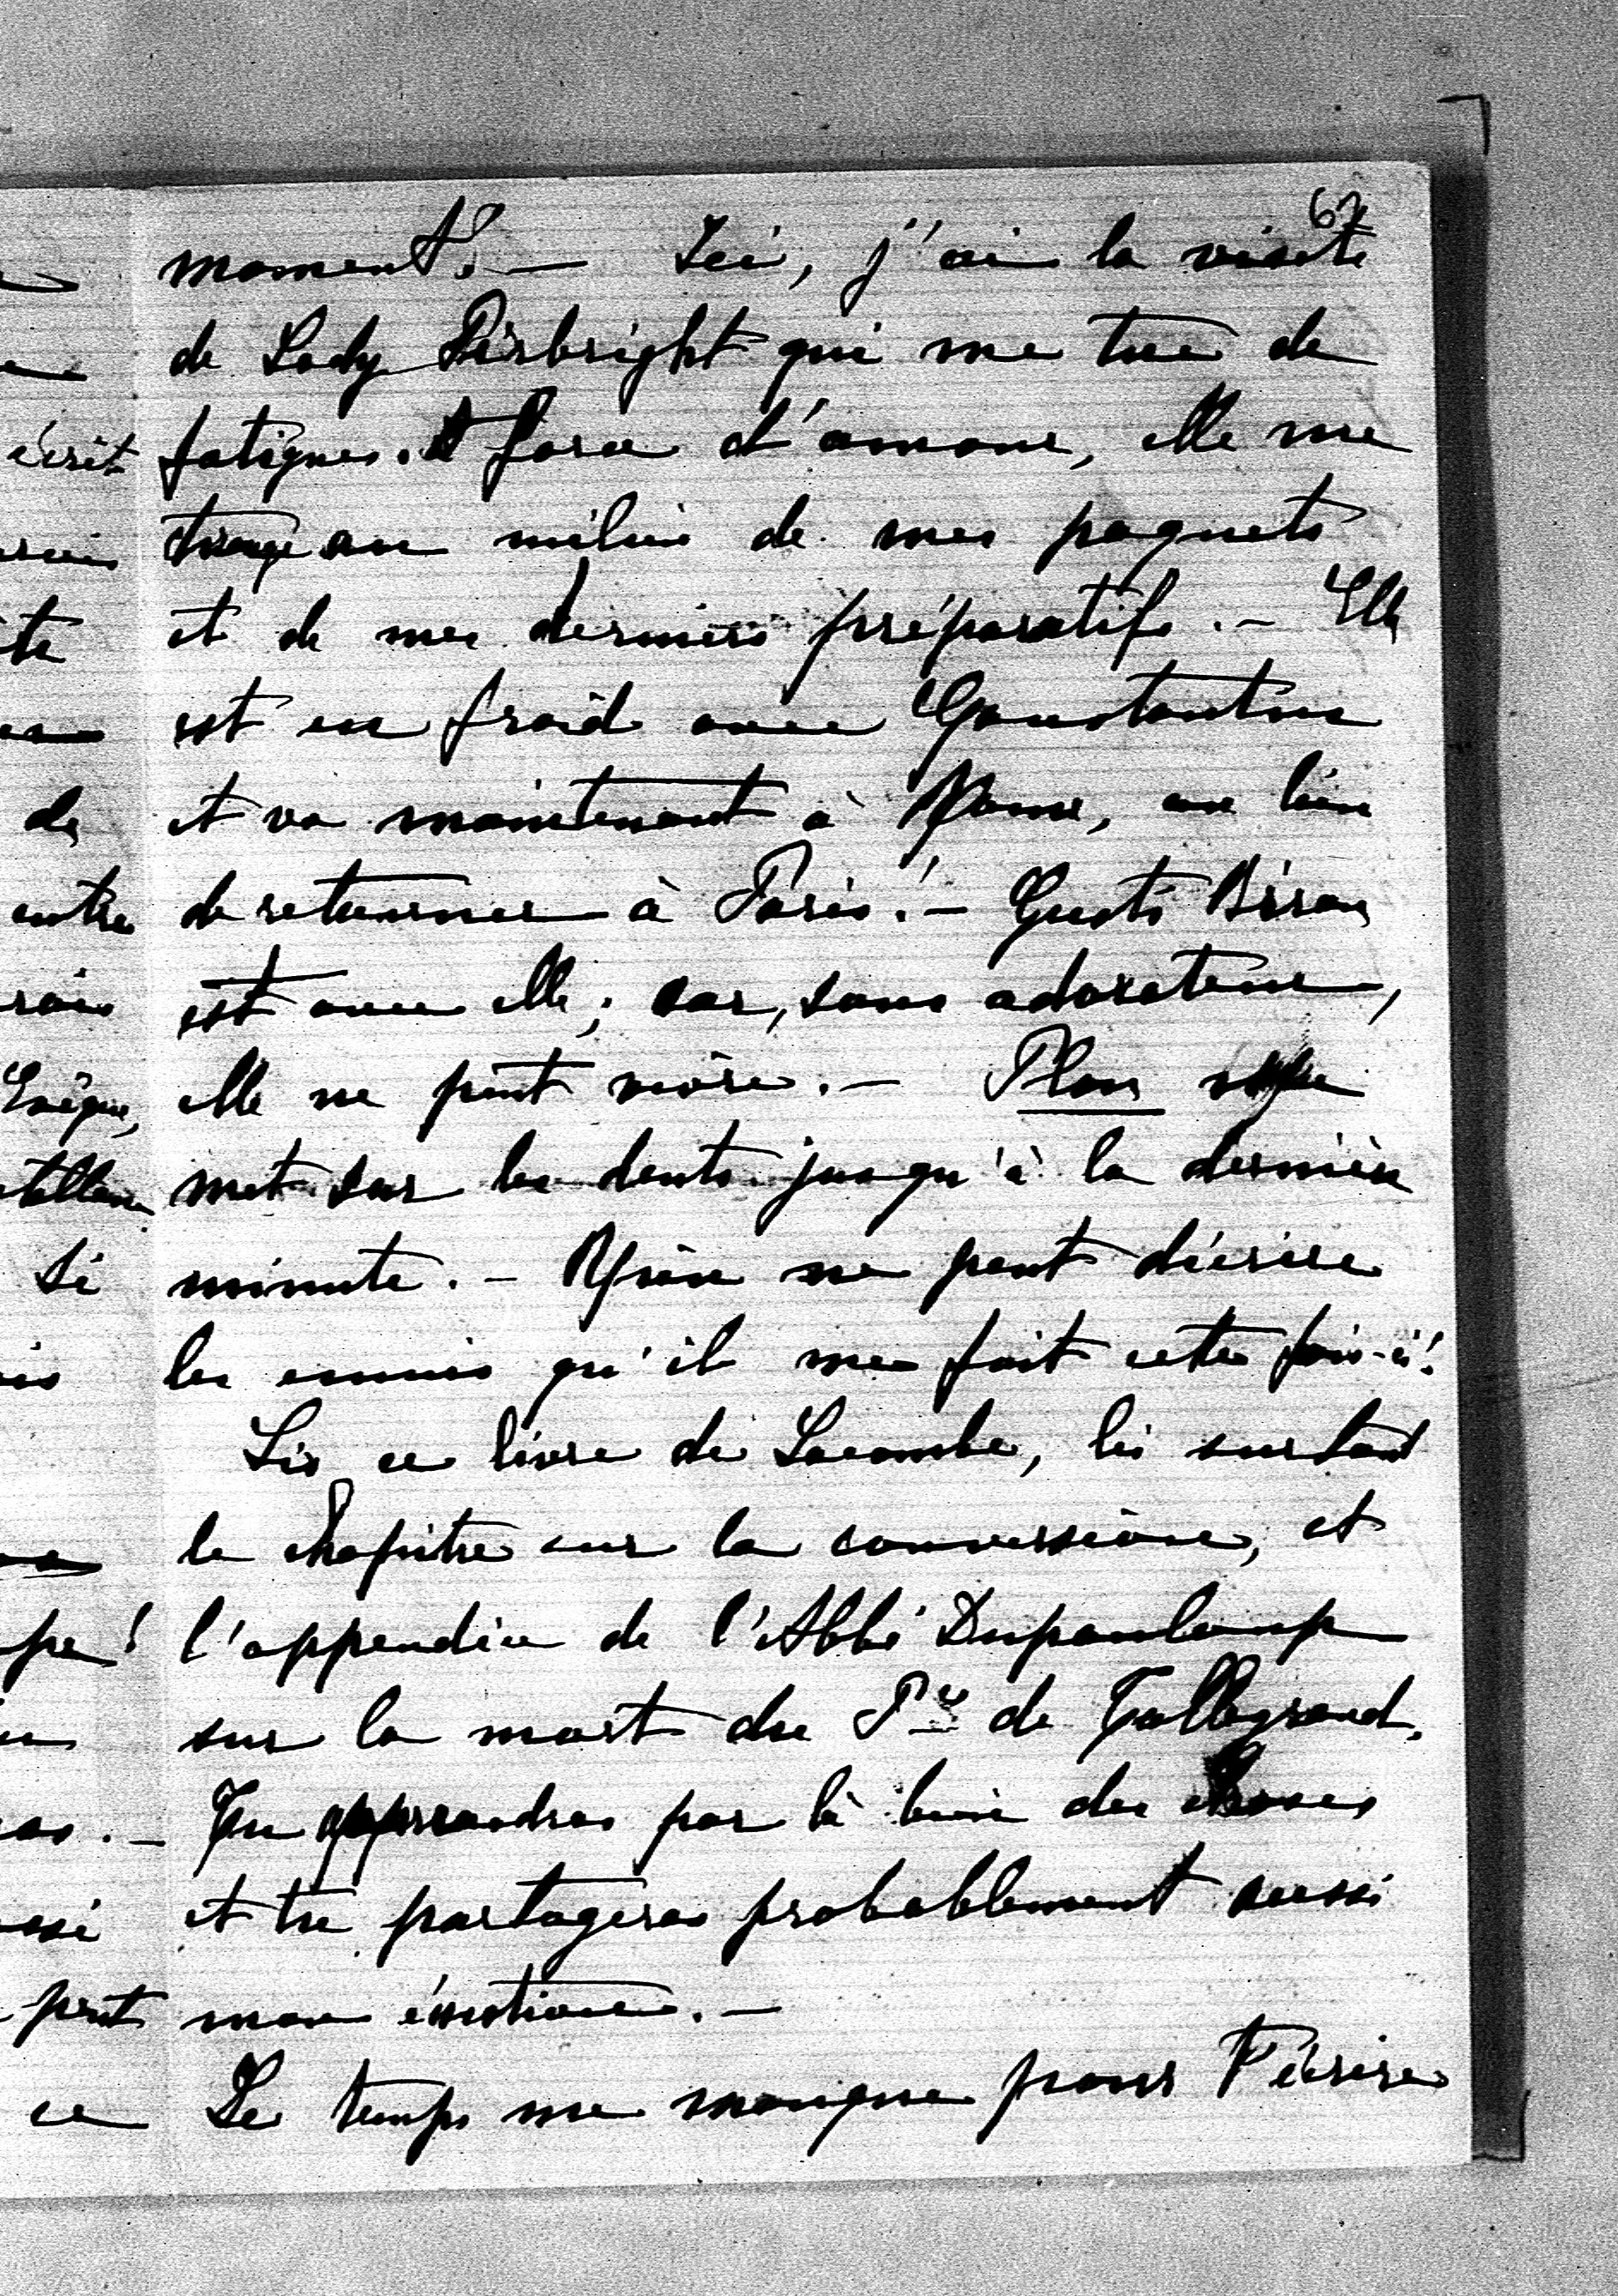 67
moment! — Ici, j'ai la visite
de Lady Pirbright qui me tue de
fatigue. A force d'amour, elle me
au milieu de mes paquets
et de mes derniers préparatifs. — Elle
est en froid avec Constantin
et va maintenant à Rome, au lieu
de retourner à Paris! — Gusti
est avec elle; car, sans adorateur,
elle ne peut vivre. — Plon me
met sur les dents jusqu'à la dernière
minute. — Rien ne peut décrire
les ennuis qu'il me fait cette fois-ci!
Lis ce livre de Lacombe, lis surtout
le chapitre sur la conversion, et
l'appendice de l'Abbé Dupanloup
sur la mort du Pce de Talleyrand.
Tu apprendras par là bien des choses
et tu partageras probablement aussi
mon émotion. —
Le temps me manque pour t'écrire
écrit
entre
de
Evêque,
si
peut
ce